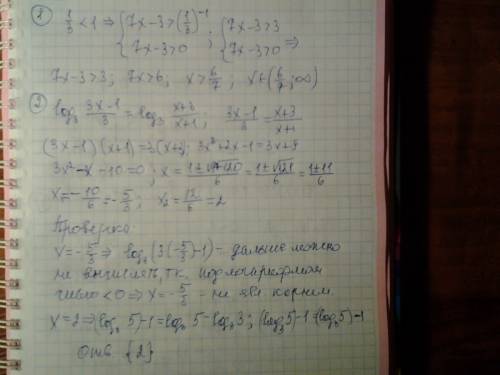 ① 1/3 < 1 ⇒ { 7x-3 > (1/3)^-1 ; 7x-3 > 0 ; { 7x-3 > 3 ; 7x-3 > 0 ⇒
7x-3>3; 7x>6; x>6/7; x∈(6/7; ∞)
② log₃ (3x-1)/3 = log₃ (x+3)/(x+1); (3x-1)/3 = (x+3)/(x+1)
(3x-1)(x+1)=3(x+3); 3x²+2x-1=3x+9
3x²-x-10=0; x = (1±√(1+120))/6 = (1±√121)/6 = (1±11)/6
x₁=-10/6=-5/3; x₂=12/6=2
Проверка
x=-5/3 ⇒ log₃(3(-5/3)-1)- дальше можно
не вычислять, т.к. под логарифмом
число <0 ⇒ x=-5/3 - не явл корнем.
x=2 ⇒ (log₃ 5)-1=log₃ 5-log₃ 3; (log₃5)-1=(log₃5)-1
Отв {2}